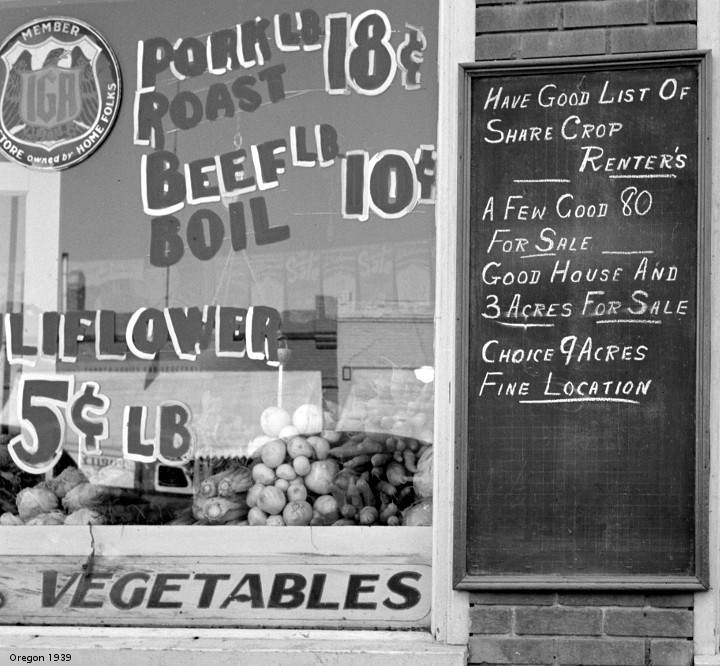 MEMBER
IGA
STORE OWNED BY HOME FOLKS
PORK LB 18¢
ROAST
BEEF LB 10¢
BOIL
LIFLOWER
5¢ LB
VEGETABLES
HAVE GOOD LIST OF
SHARE CROP
RENTER'S
A FEW GOOD 80
FOR SALE
GOOD HOUSE AND
3 ACRES FOR SALE
CHOICE 9 ACRES
FINE LOCATION
Oregon 1939